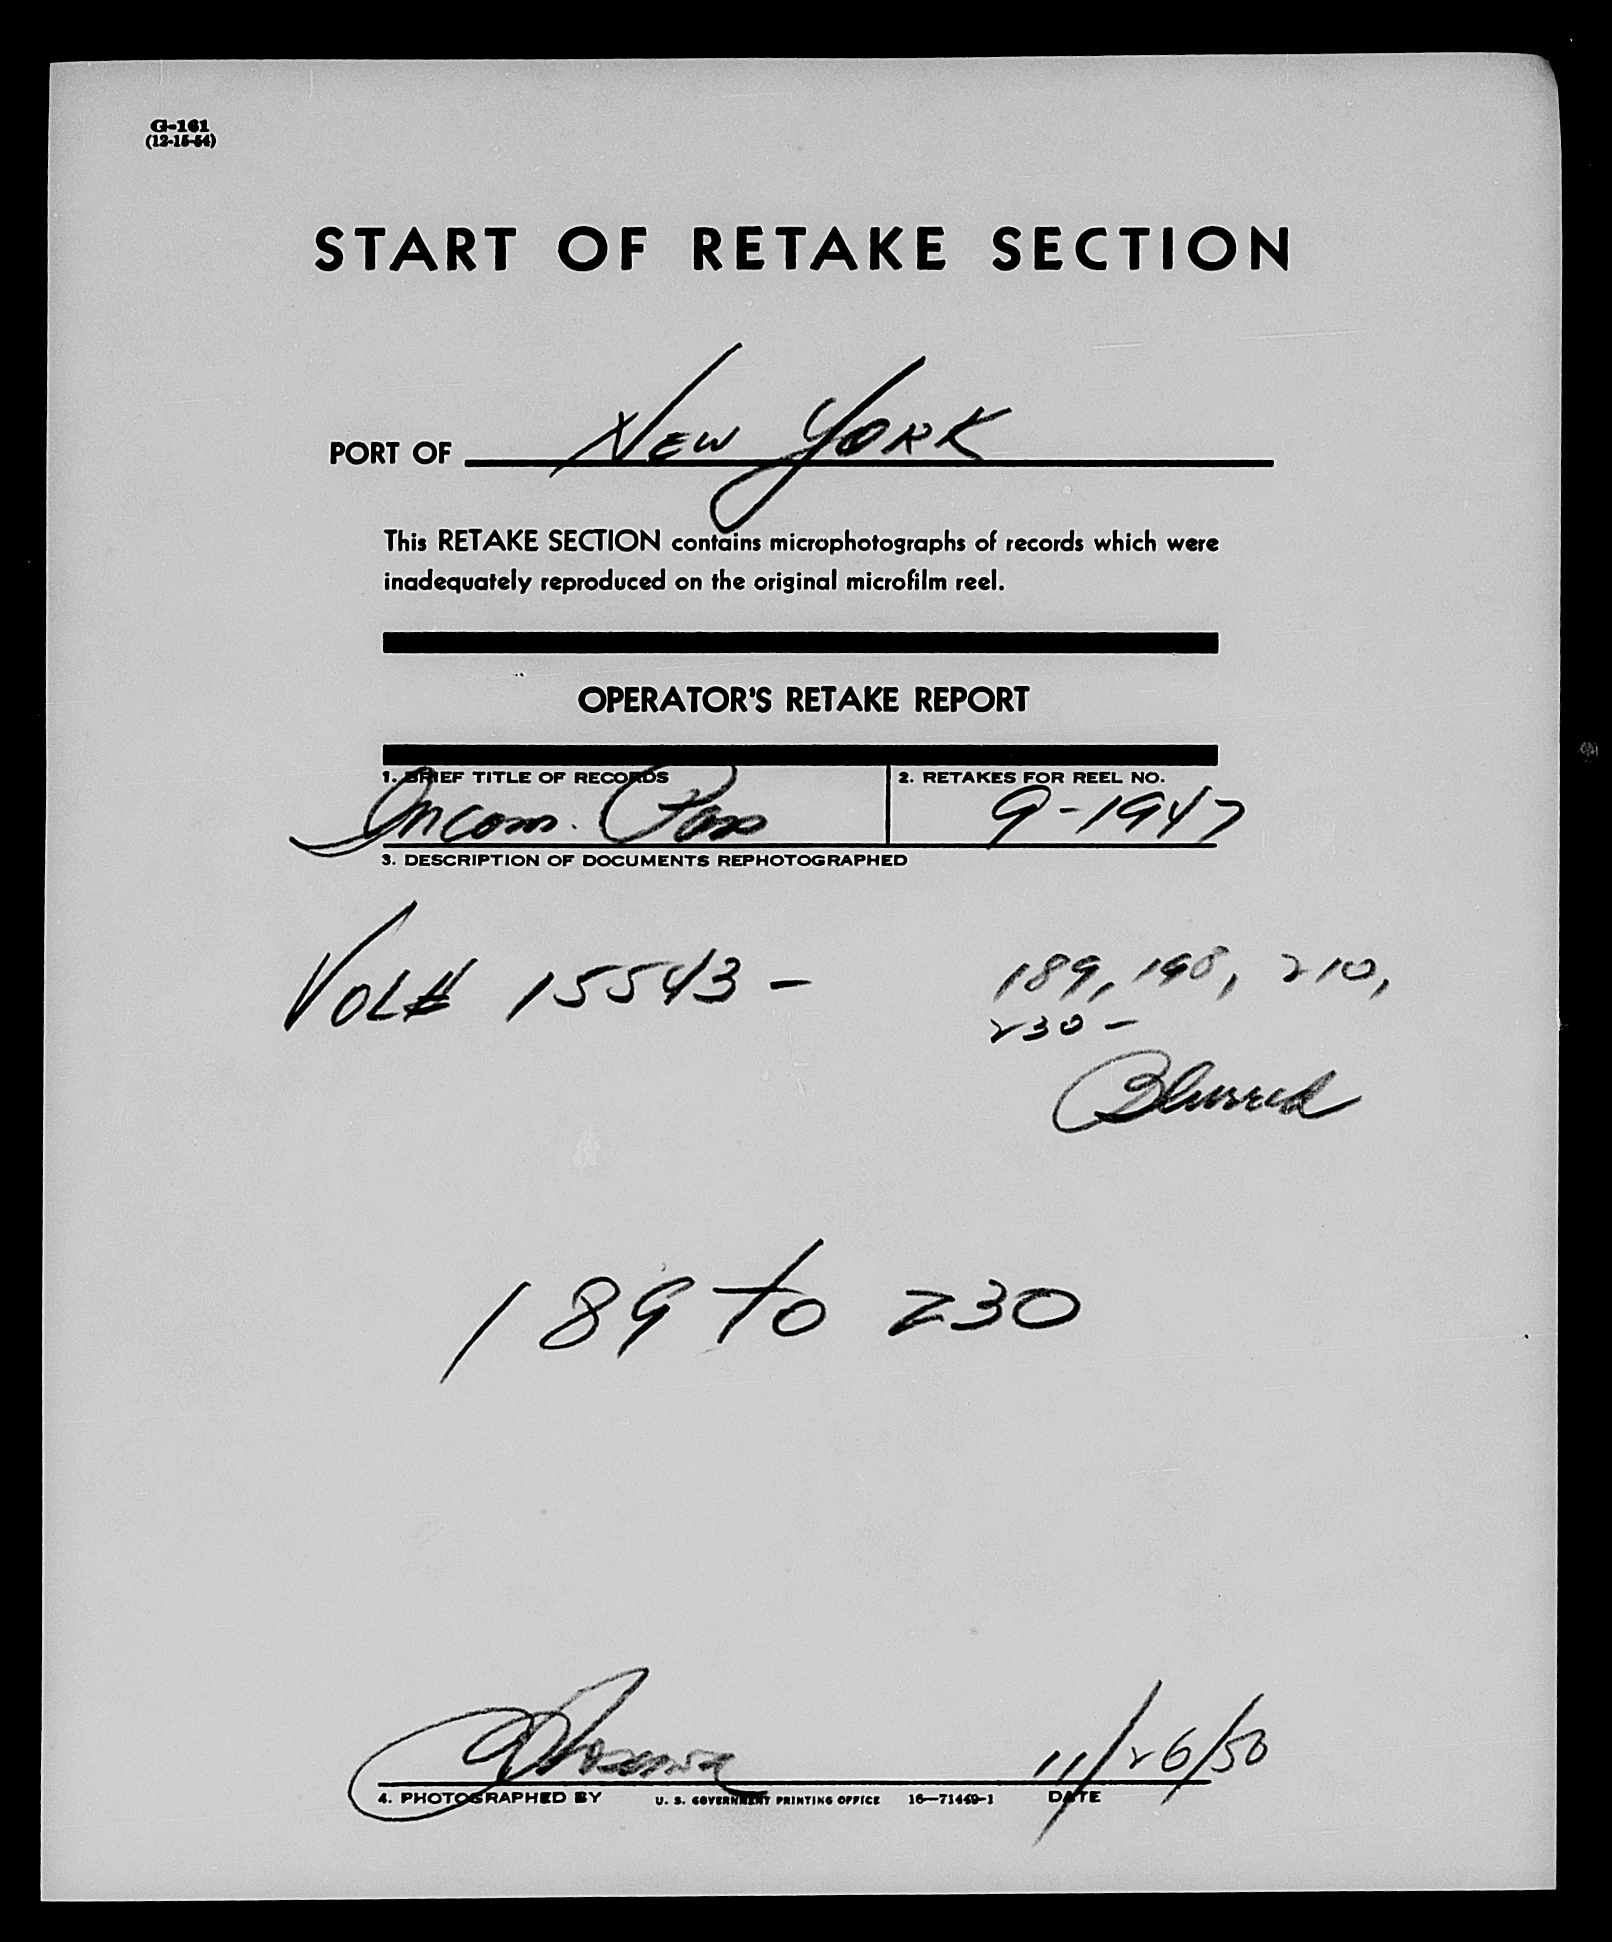 G-161
(12-15-54)
START OF RETAKE SECTION
PORT OF NEW YORK
This RETAKE SECTION contains microphotographs of records which were
inadequately reproduced on the original microfilm reel.
OPERATOR'S RETAKE REPORT
1. BRIEF TITLE OF RECORDS 2. RETAKES FOR REEL NO.
Incom. Pass 9-1947
3. DESCRIPTION OF DOCUMENTS REPHOTOGRAPHED
VOL# 15543 - 189, 198, 210,
230 -
Blurred
189 to 230
11/26/50
4. PHOTOGRAPHED BY U. S. GOVERNMENT PRINTING OFFICE 16—71449-1 DATE